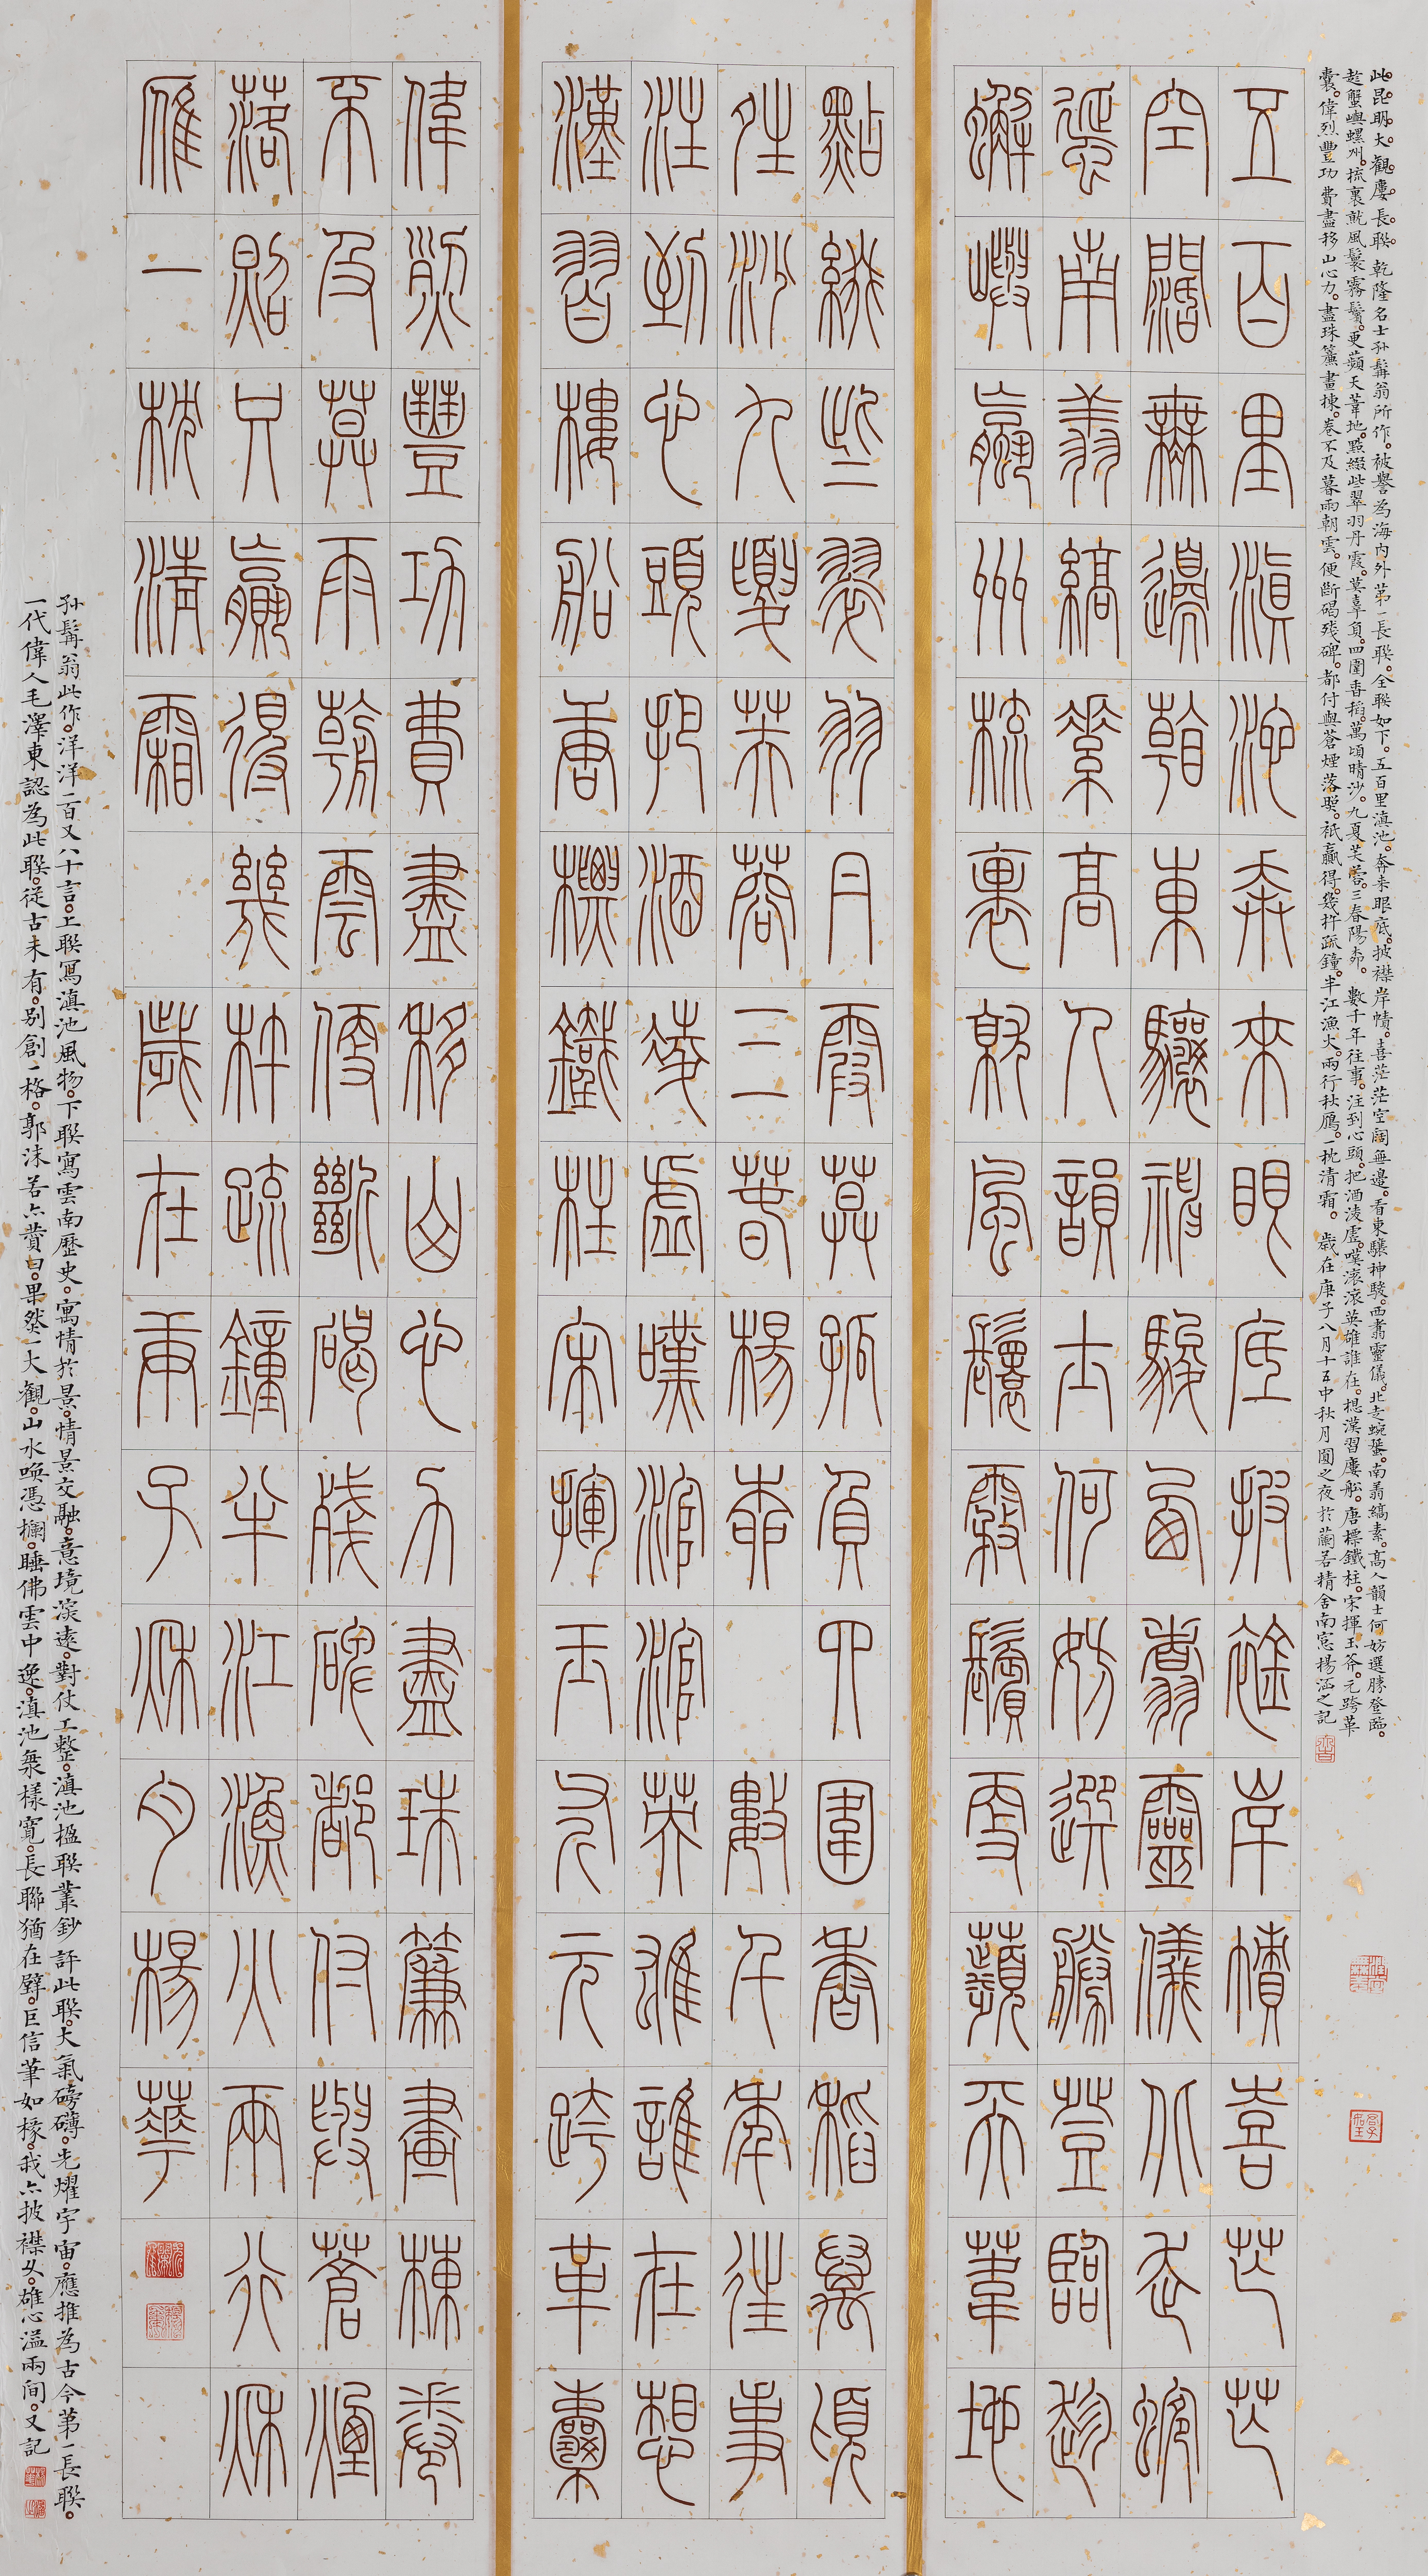 此昆明大觀廔長聯。乾隆名士孫髯翁所作。被譽為海內外第一長聯。全聯如下。五百里滇池。奔來眼底。披襟岸幘。喜茫茫空闊無邊。看東驤神駿。西翥靈儀。北走蜿蜒。南翔縞素。高人韻士何妨選勝登臨。
趁蟹嶼螺州。梳裹就風鬟霧鬢。更蘋天葦地。點綴些翠羽丹霞。莫辜負。四圍香稻。萬頃晴沙。九夏芙蓉。三春陽柳。數千年往事。注到心頭。把酒淩虛。嘆滾滾英雄誰在。想漢習廔船。唐標鐵柱。宋揮玉斧。元跨革
囊。偉烈豐功費盡移山心力。盡珠簾畫棟。卷不及暮雨朝雲。便斷碣殘碑。都付與蒼煙落照。祇贏得。幾杵疏鐘。半江漁火。兩行秋鴈。一枕清霜。歲在庚子八月十五中秋月圓之夜於蘭若精舍南窓楊涵之記
五百里滇池奔來眼底披襟岸幘喜茫茫
空闊無邊看東驤神駿西翥靈儀北走蜿
蜒南翔縞素高人韻士何妨選勝登臨趁
蟹嶼蠃州梳裹就風鬟霧鬢更蘋天葦地
點綴些翠羽丹霞莫孤負四圍香稻萬頃
晴沙九夏芙蓉三春楊柳 數千年往事
注到心頭把酒淩虛嘆滾滾英雄誰在想
漢習樓船唐標鐵柱宋揮玉斧元跨革囊
偉烈豐功費盡移山心力盡珠簾畫棟卷
不及暮雨朝雲便斷碣殘碑都付與蒼煙
落照只贏得幾杵疏鐘半江漁火兩行秋
雁一枕清霜 歲在庚子秋月楊華
孫髯翁此作。洋洋一百又八十言。上聯寫滇池風物。下聯寫雲南歷史。寓情於景。情景交融。意境深遠。對仗工整。滇池楹聯叢鈔評此聯。大氣磅礴。光耀宇宙。應推為古今第一長聯。
一代偉人毛澤東認為此聯。從古未有。別創一格。郭沫若亦贊曰。果然一大觀。山水喚憑欄。睡佛雲中逸。滇池無樣寬。長聯猶在壁。巨信筆如椽。我亦披襟久。雄心溢兩間。又記